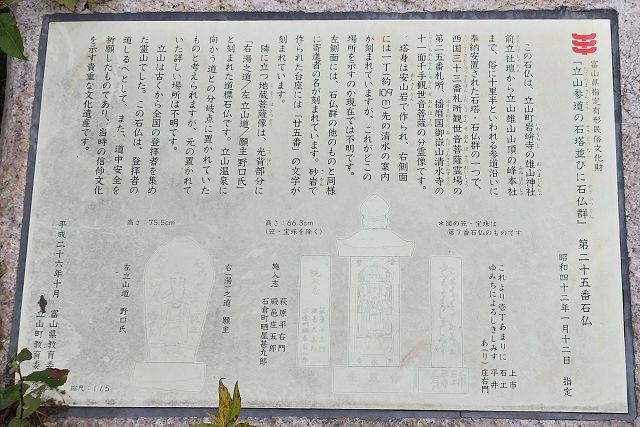 富山県指定有形民俗文化財
『立山参道の石塔並びに石仏群』 第二十五番石仏
昭和四十二年一月十二日 指定
この石仏は、立山町岩峅寺の雄山神社
前立社壇から立山雄山山頂の峰本社
まで、俗に十里半といわれる参道沿いに
奉納安置された石塔・石仏群の一つで、
西国三十三番札所観世音菩薩霊場の
第二五番札所、播磨国御嶽山清水寺の
十一面千手観世音菩薩の分霊像です。
塔身は安山岩で作られ、右側面
には一丁(約109m)先の清水の案内
が刻まれていますが、これがどこの
場所を示すのか現在では不明です。
左側面には、石仏群の他のものと同様
に寄進者の名が刻まれています。砂岩で
作られた台座には「廿五番」の文字が
刻まれています。
隣に立つ地蔵菩薩像は、光背部分に
「右湯之道/左立山道 願主野口氏」
と刻まれた道標石仏です。立山温泉に
向かう道との分岐点に置かれていた
ものと考えられますが、元の置かれて
いた詳しい場所は不明です。
立山は古くから全国の登拝者を集め
た霊山でした。この石仏は、登拝者の
道しるべとして、また、道中安全を
祈願したものであり、当時の信仰文化
を示す貴重な文化遺産です。
平成二十六年十月 富山県教育委
立山町教育委
*図の笠・宝珠は
第7番石仏のものです
高さ:66.3cm
(笠・宝珠を除く)
高さ:75.5cm
これより壱丁あまりに
ゆみちによろしきしみす
あり
上市
石工 平井
庄右門
施入志 萩原平右門
殿邑庄五郎
石倉町晒屋甚九郎
右(湯)之道 願主
左立山道 野口氏
縮尺:1/5